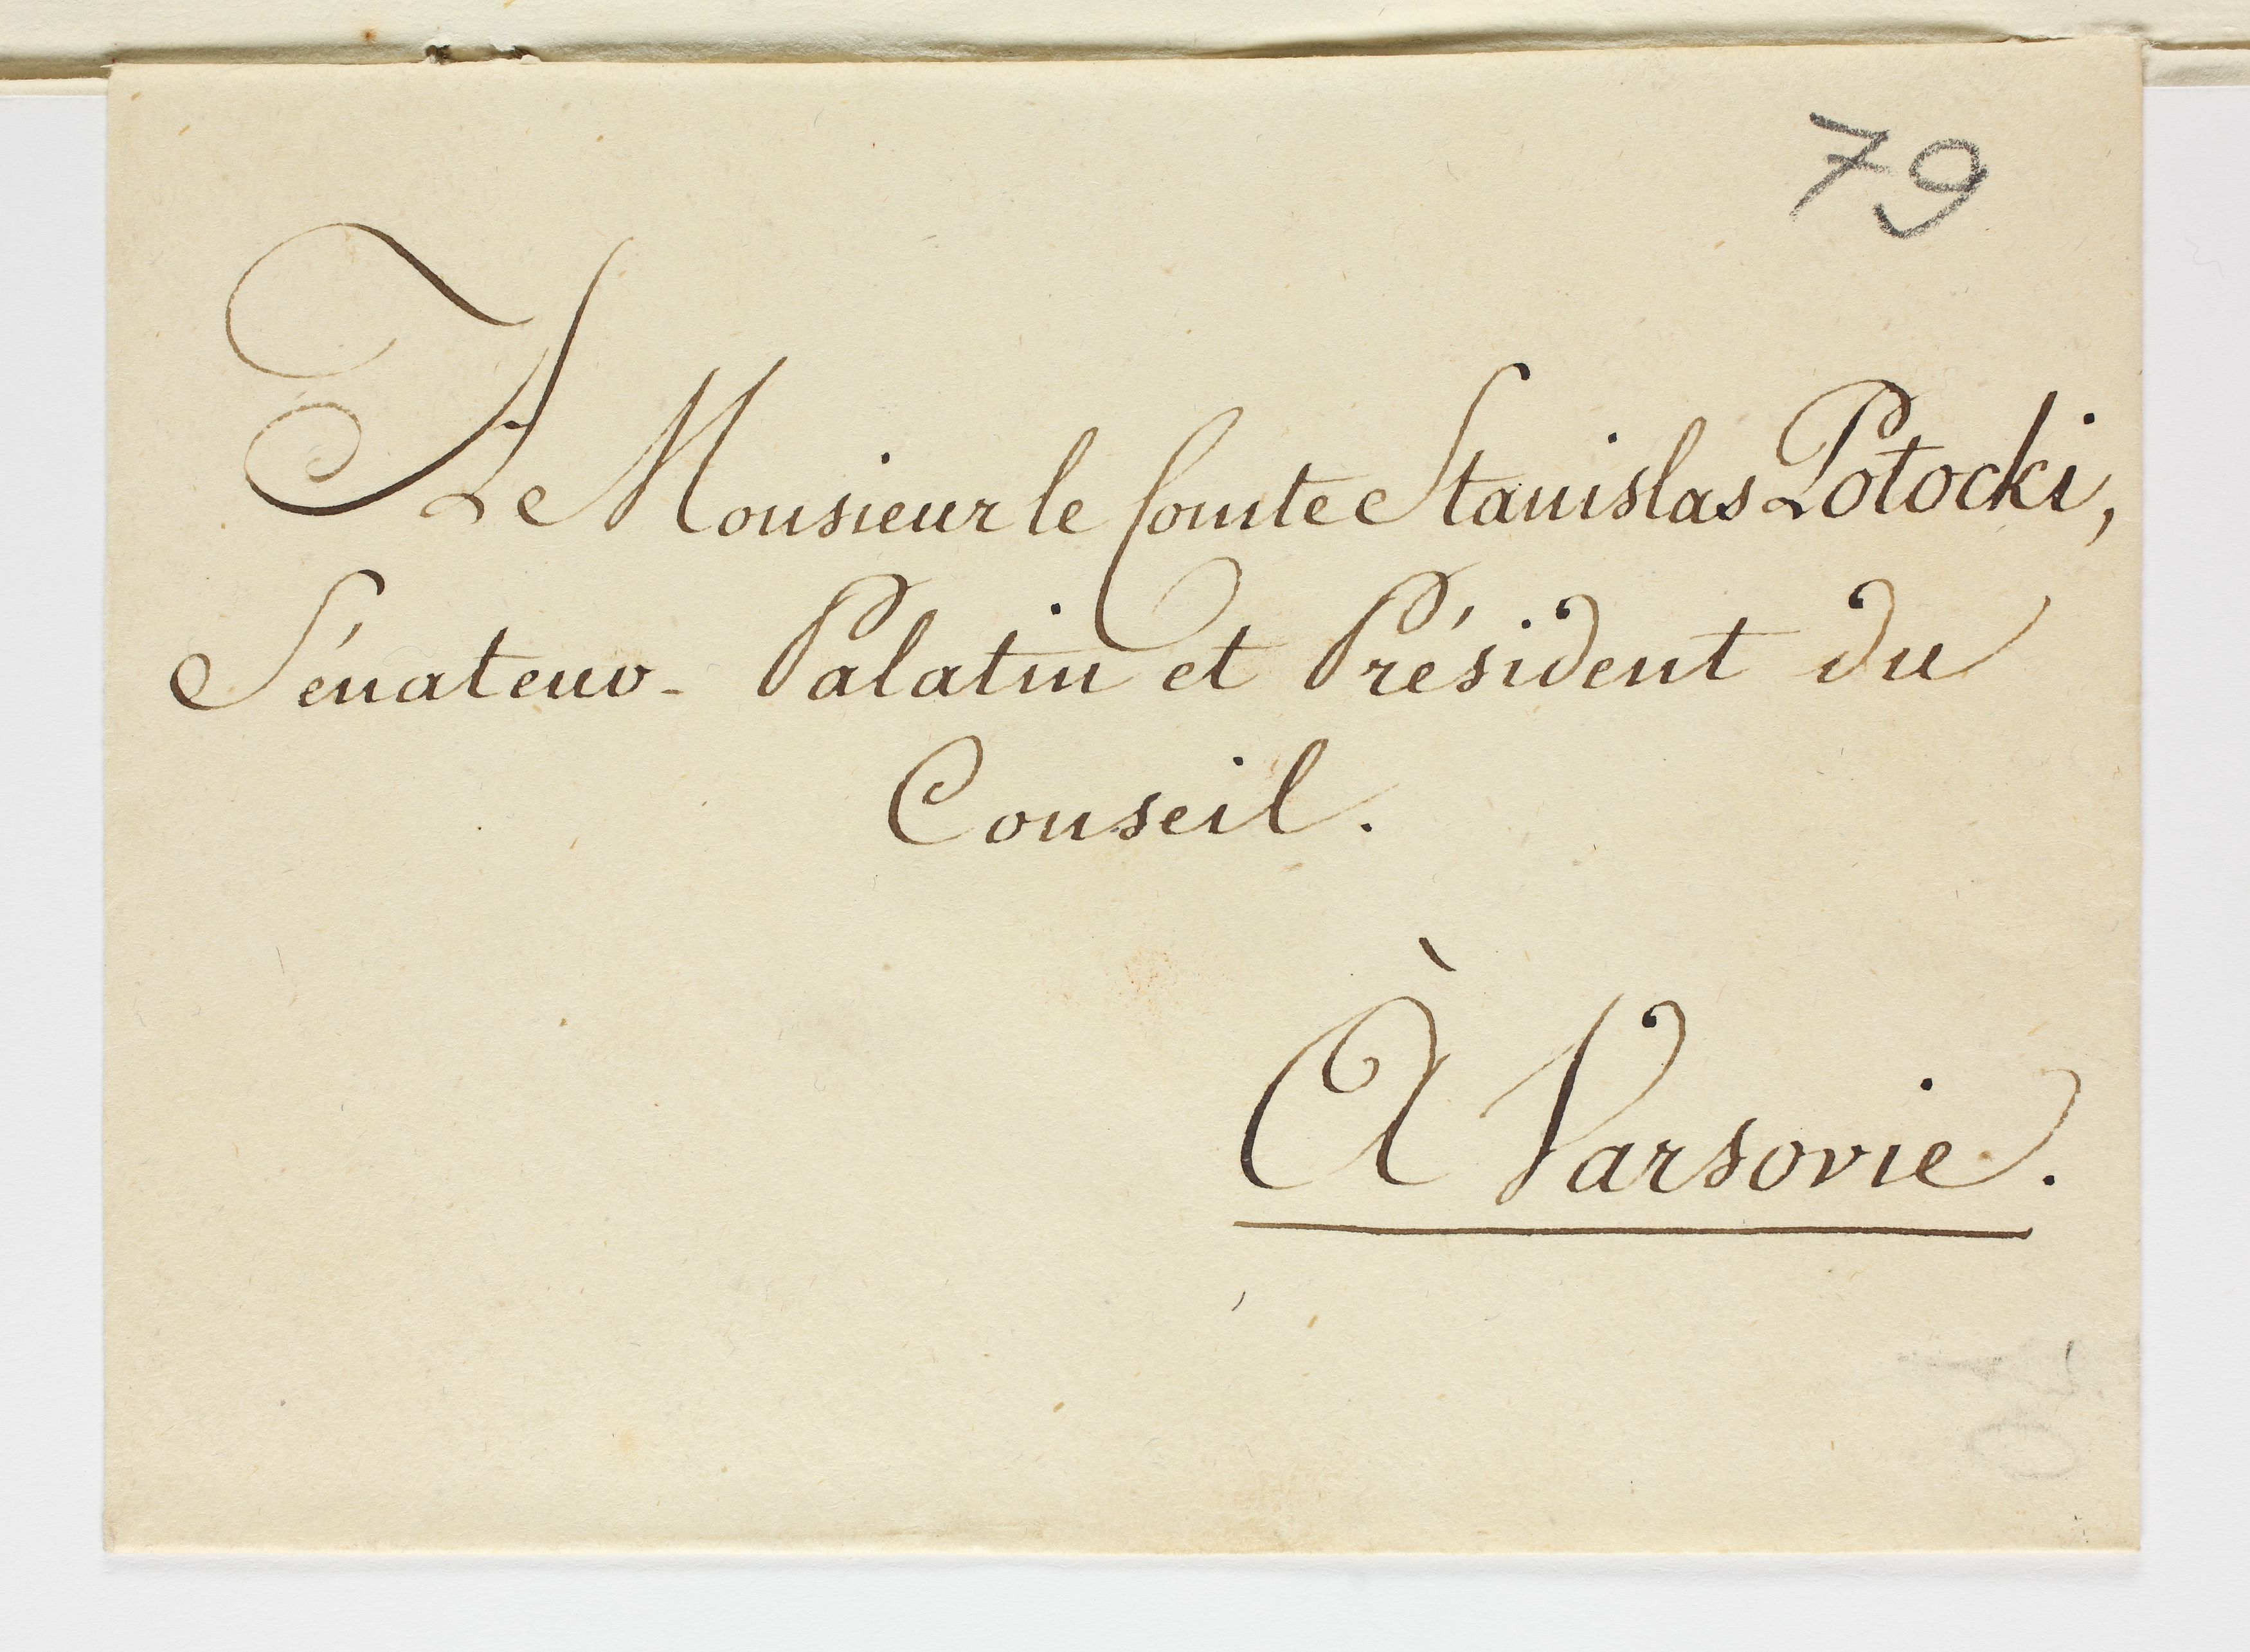 79
A Monsieur le Comte Stanislas Potocki,
Sénateur-Palatin et Président du
Conseil.
À Varsovie.